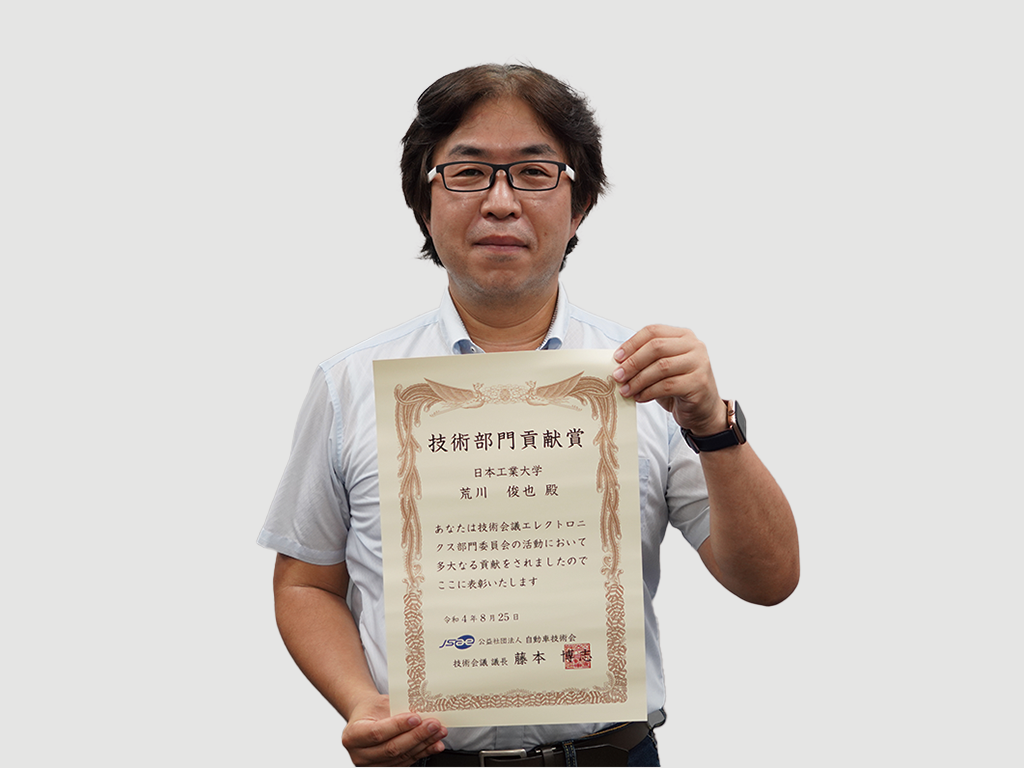 技術部門貢献賞
日本工業大学
荒川 俊也 殿
あなたは技術会議エレクトロニ
クス部門委員会の活動において
多大なる貢献をされましたので
ここに表彰いたします
令和4年8月25日
JSAE 公益社団法人 自動車技術会
技術会議 議長 藤本 博志